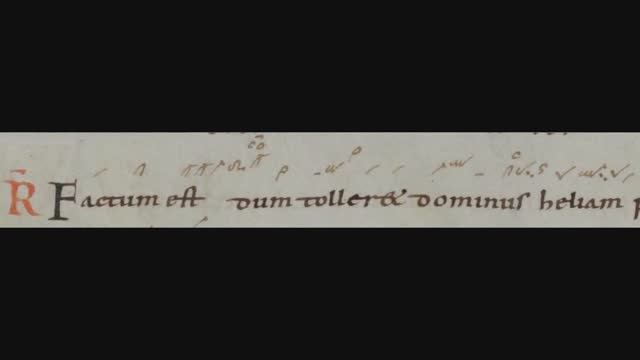 R̄ Factum est dum toller& dominus heliam